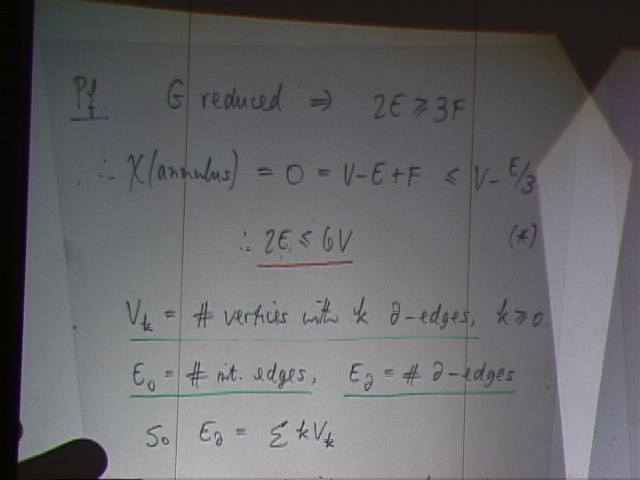 Pf. G reduced ⇒ 2E ⩾ 3F
∴ χ(annulus) = 0 = V-E+F ≤ V-E/3
∴ 2E ≤ 6V (*)
V_k = # vertices with k ∂-edges, k ⩾ 0.
E_0 = # int. edges, E_∂ = # ∂-edges
So E_∂ = Σ k V_k